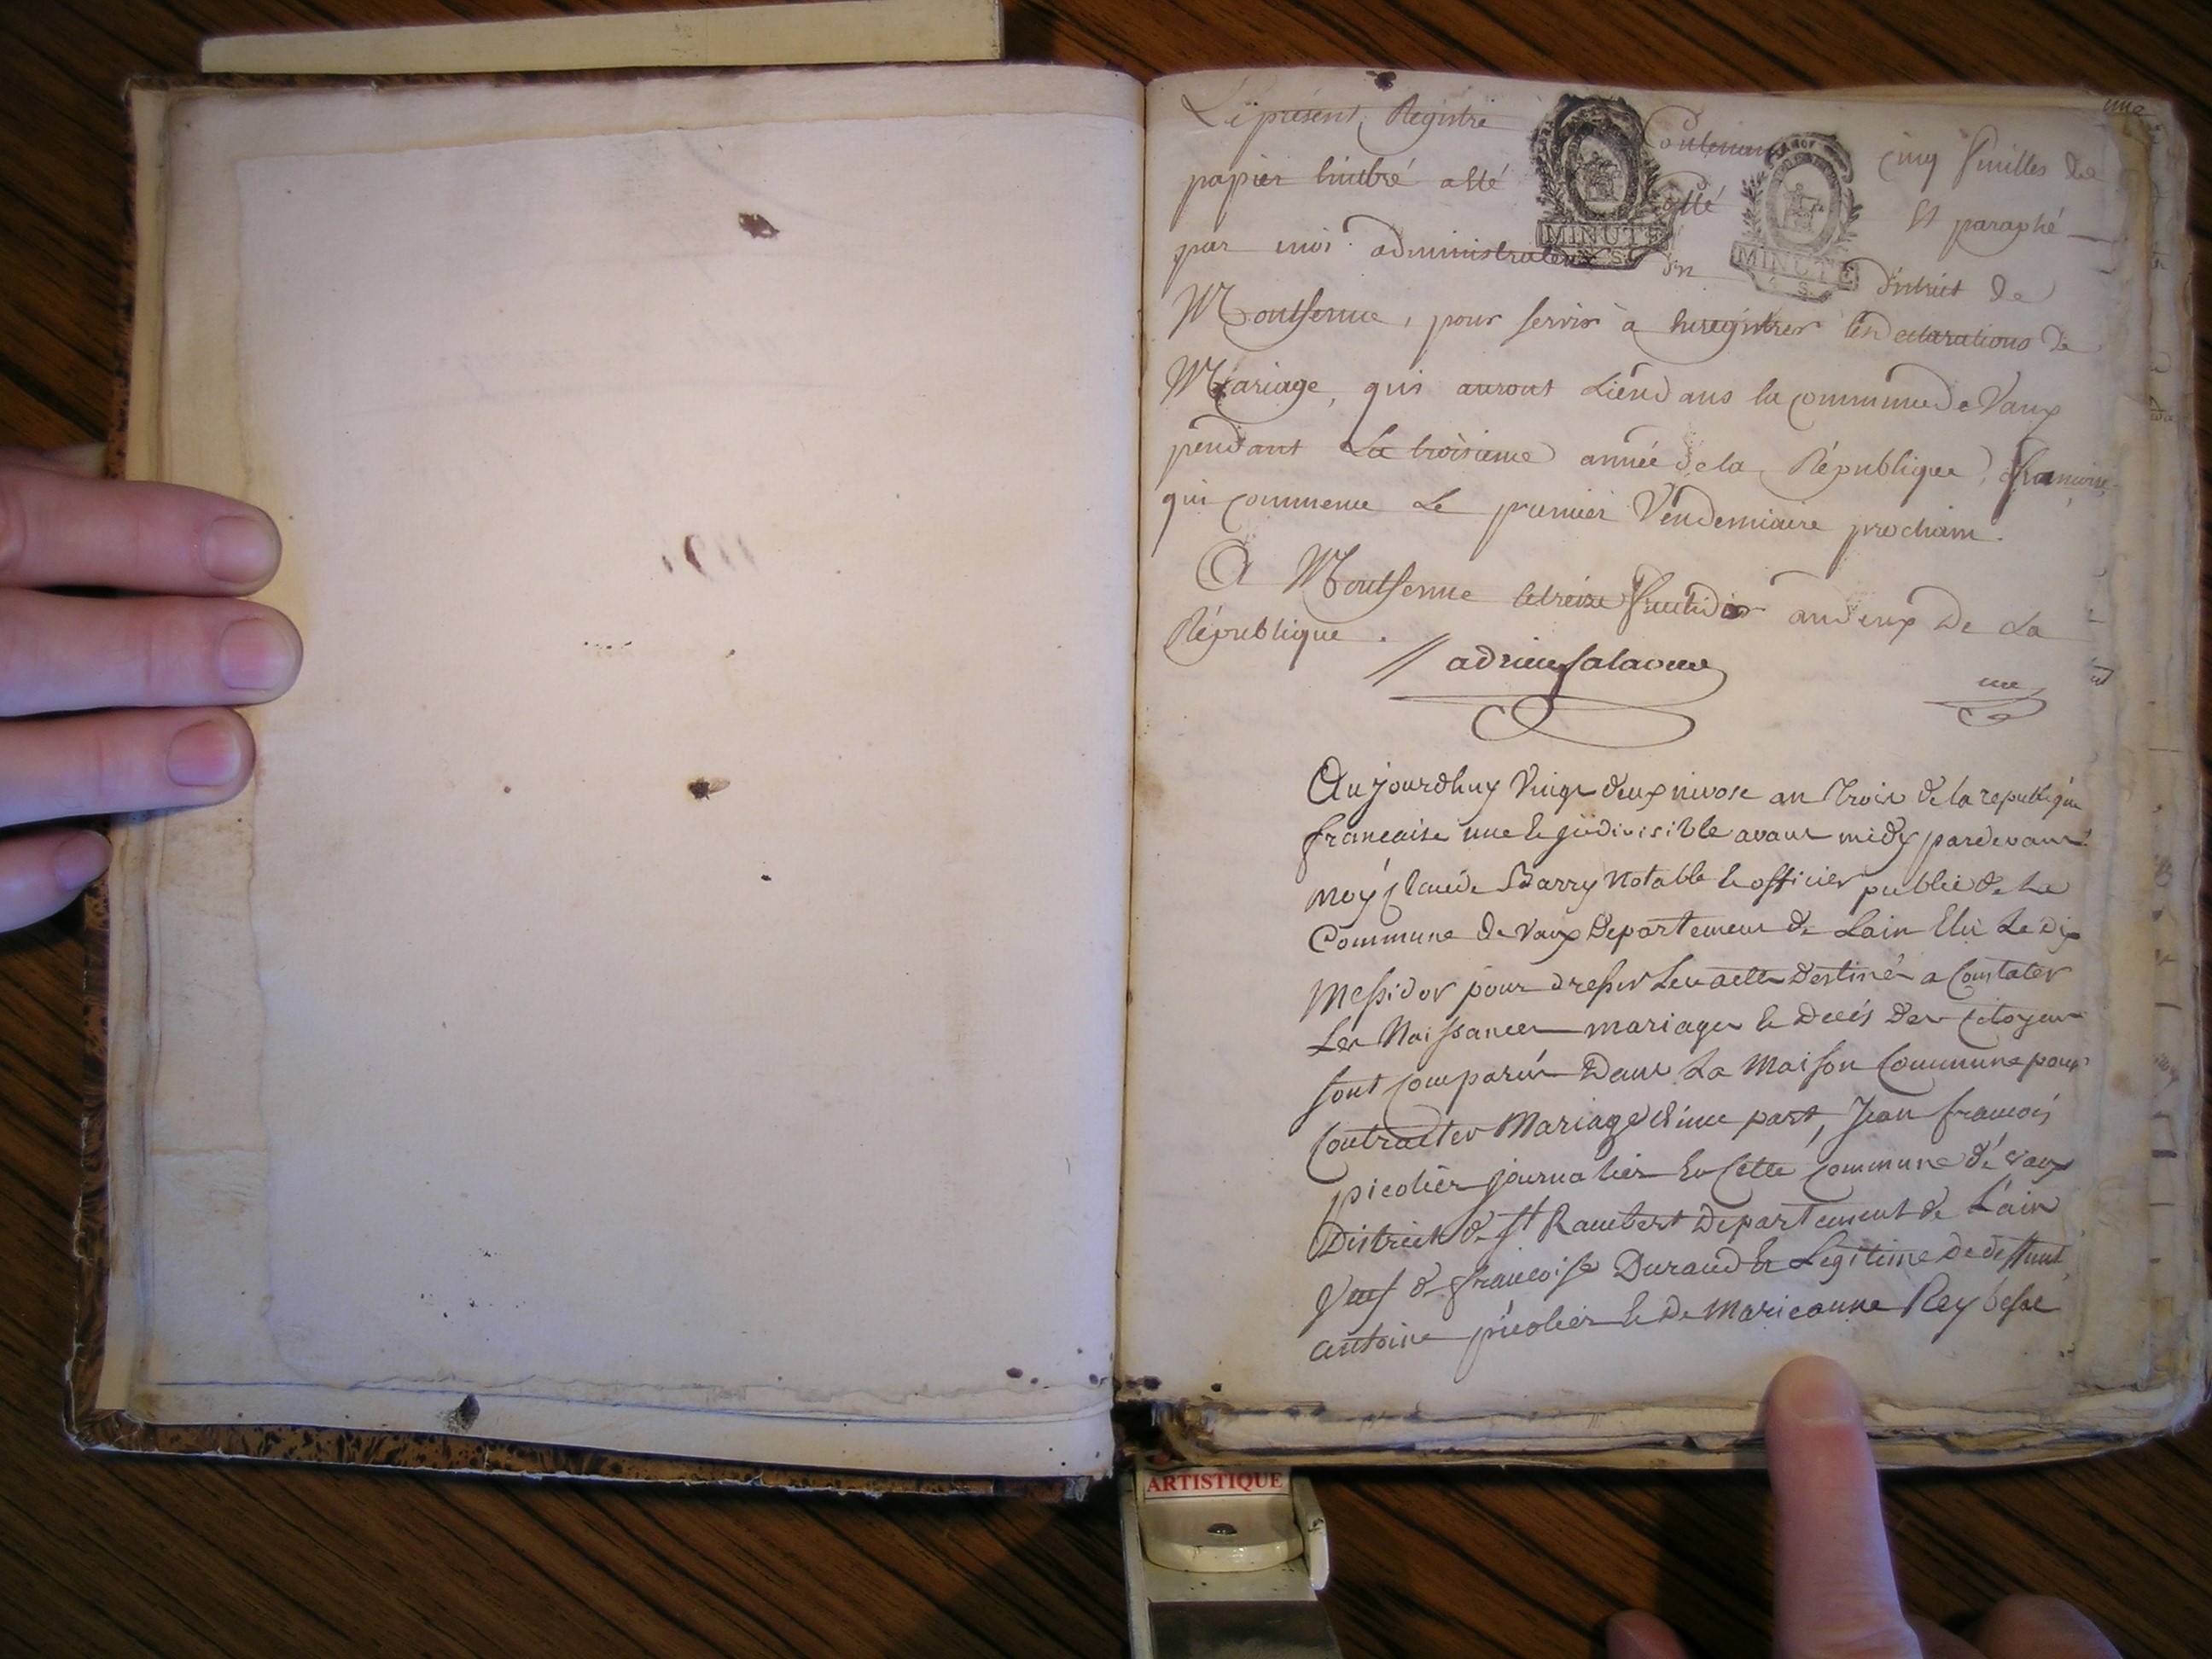 une
Le présent Registre Contenant cinq feuilles de
papier timbré a été Cotté Et paraphé
par moi administrateur du district de
Montferme, pour servir à Enregistrer les declarations de
Mariage, qui auront Lieu dans la commune de Vaux
pendant La troisieme année de la République francoise
qui commence Le premier Vendemiaire prochain.
A Montferme le treize fructidor an deux De La
République.
MINUTE
MINUTE
une
Aujourdhuy Vingt deux nivose an Trois de la republique
francaise une & indivisible avant midy pardevant
moy Claude Barry Notable & officier public de La
Commune de Vaux Departement de Lain Elû Le dix
Messidor pour dresser Les actes Destinés a Constater
Les Naissances mariages & Decés Des Citoyens
sont comparûs Dans La Maison Commune pour
Contracter Mariage d'une part, Jean francois
picolier journalier En Cette commune dé vaux
District de St Rambert Departement de L'ain
Veuf de francoise Durand & Legitime de deffunt
antoine picolier & De marieanne Rey
ARTISTIQUE